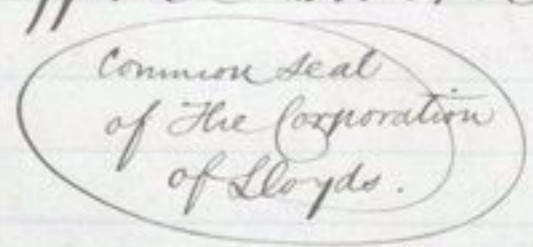 Common Seal
of The Corporation
of Lloyds.